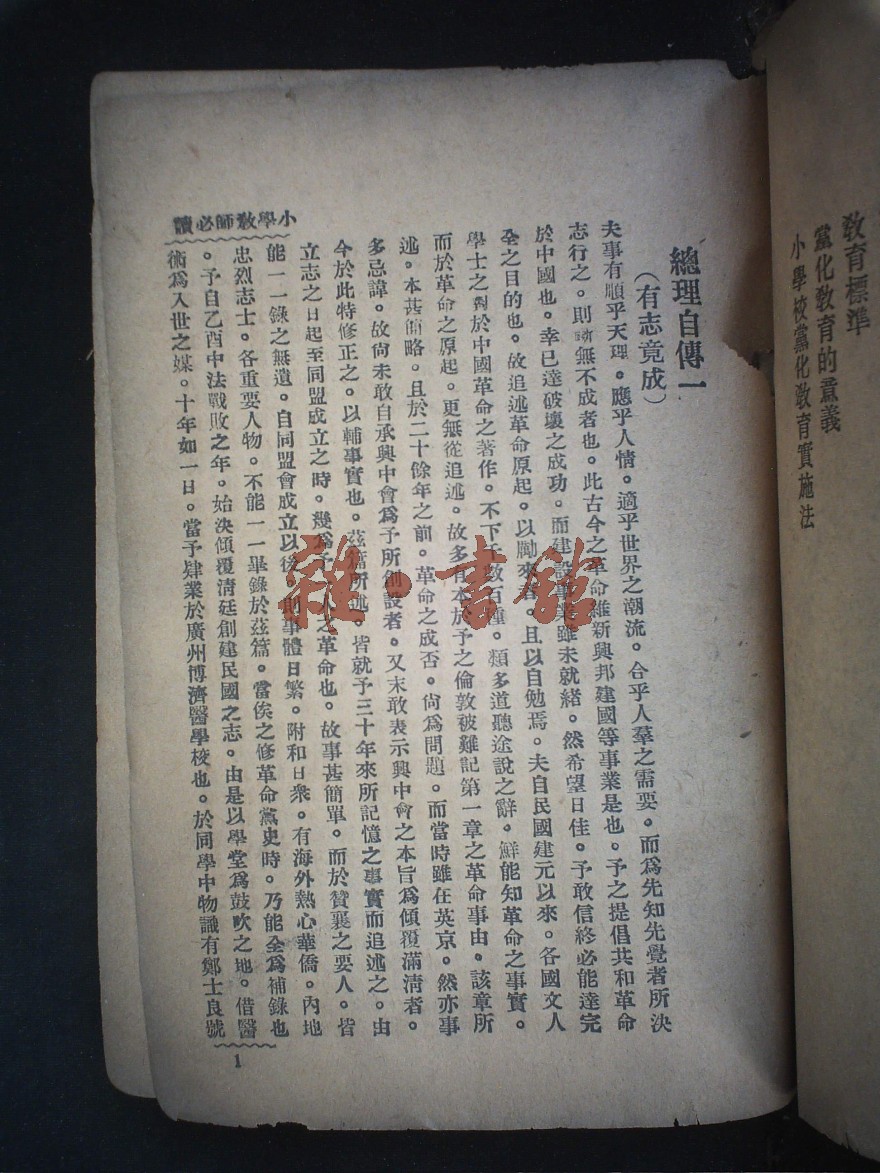 教育標準
黨化教育的意義
小學校黨化教育實施法
總理自傳一
（有志竟成）
夫事有順乎天理。應乎人情。適乎世界之潮流。合乎人羣之需要。而爲先知先覺者所決
志行之。則斷無不成者也。此古今之革命維新興邦建國等事業是也。予之提倡共和革命
於中國也。幸已達破壞之成功。而建設事業雖未就緒。然希望日佳。予敢信終必能達完
全之目的也。故追述革命原起。以勵來者。且以自勉焉。夫自民國建元以來。各國文人
學士之對於中國革命之著作。不下千數百種。類多道聽途說之辭。鮮能知革命之事實。
而於革命之原起。更無從追述。故多有本於予之倫敦被難記第一章之革命事由。該章所
述。本甚簡略。且於二十餘年之前。革命之成否。尙爲問題。而當時雖在英京。然亦事
多忌諱。故尙未敢自承興中會爲予所創設者。又末敢表示興中會之本旨爲傾覆滿淸者。
今於此特修正之。以輔事實也。茲篇所述。皆就予三十年來所記憶之事實而追述之。由
立志之日起至同盟成立之時。幾爲予一人之革命也。故事甚簡單。而於贊襄之要人。皆
能一一錄之無遺。自同盟會成立以後。則事體日繁。附和日衆。有海外熱心華僑。內地
忠烈志士。各重要人物。不能一一畢錄於茲篇。當俟之修革命黨史時。乃能全爲補錄也
。予自乙酉中法戰敗之年。始決傾覆淸廷創建民國之志。由是以學堂爲鼓吹之地。借醫
術爲入世之媒。十年如一日。當予肄業於廣州博濟醫學校也。於同學中物識有鄭士良號
小學敎師必讀
1
雜·書館